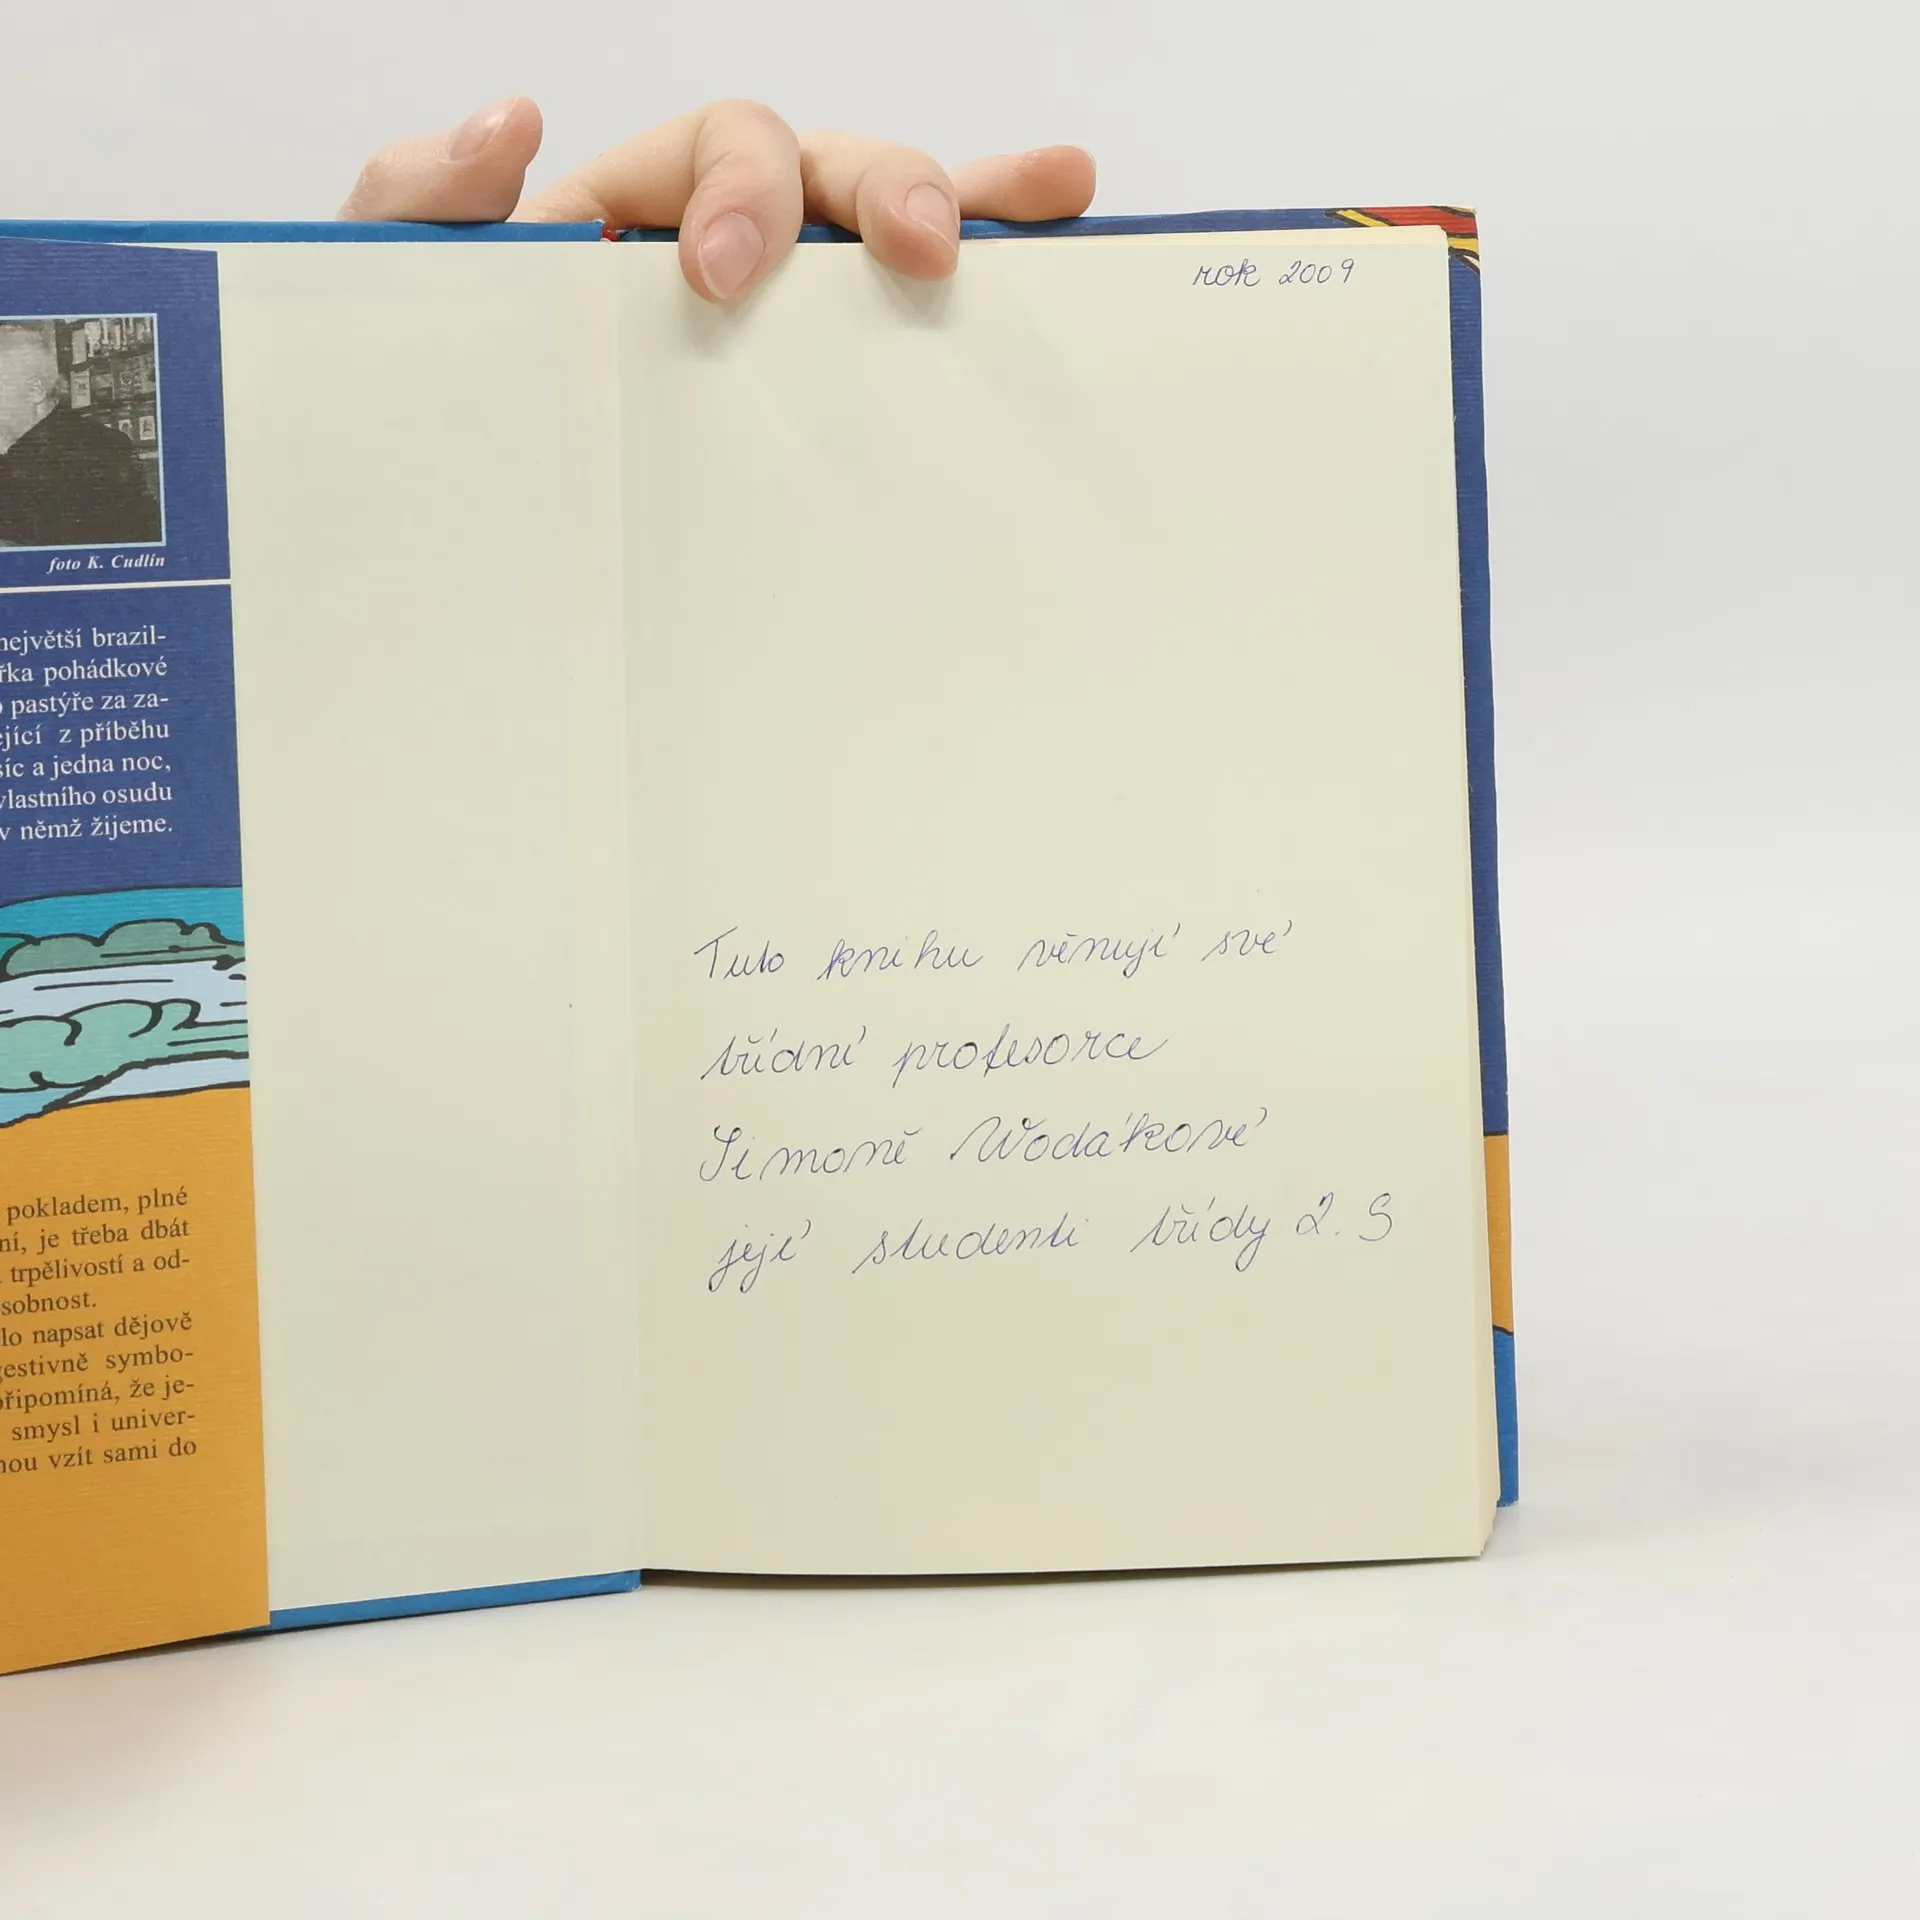 foto K. Cudlín
největší brazil-
řka pohádkové
pastýře za za-
ející z příběhu
síc a jedna noc,
vlastního osudu
v němž žijeme.
pokladem, plné
ní, je třeba dbát
trpělivostí a od-
sobnost.
lo napsat dějově
gestivně symbo-
připomíná, že je-
smysl i univer-
nou vzít sami do
rok 2009
Tuto knihu věnují své
třídní profesorce
Simoně Wodákové
její studenti třídy 2. S